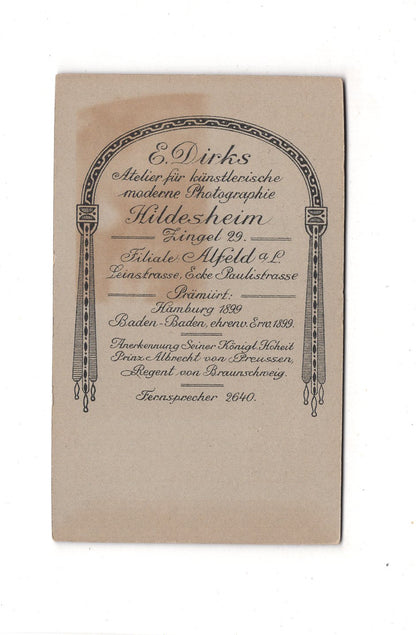 E. Dirks
Atelier für künstlerische
moderne Photographie
Hildesheim
Zingel 29.
Filiale Alfeld a/L
Leinstrasse, Ecke Paulistrasse
Prämiirt:
Hamburg 1899
Baden-Baden, ehrenv. Erw. 1899.
Anerkennung Seiner Königl. Hoheit
Prinz Albrecht von Preussen,
Regent von Braunschweig.
Fernsprecher 2640.